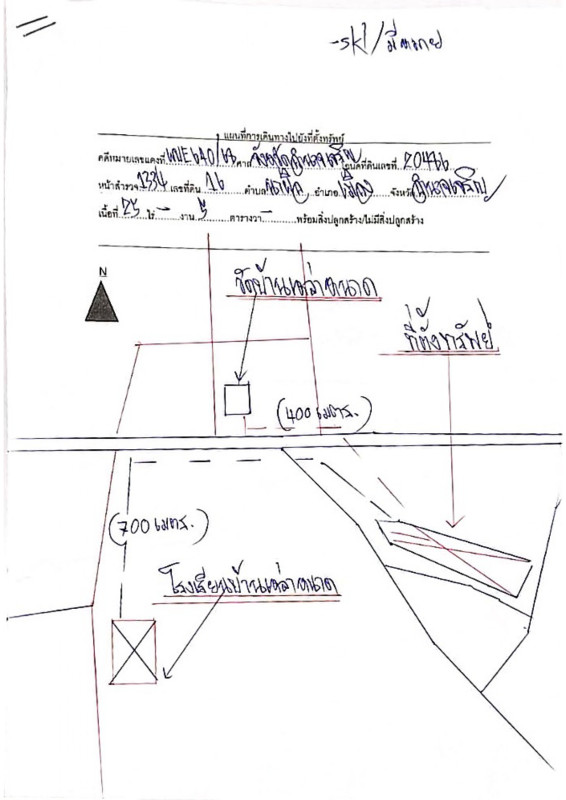 แผนที่การเดินทางไปยังที่ตั้งทรัพย์
คดีหมายเลขแดงที่ ศาล จังหวัดอำนาจเจริญ โฉนดที่ดินเลขที่ 20466
หน้าสำรวจ 1334 เลขที่ดิน 16 ตำบล อำเภอ เมือง จังหวัด อำนาจเจริญ
เนื้อที่ 25 ไร่ - งาน 5 ตารางวา - พร้อมสิ่งปลูกสร้าง/ไม่มีสิ่งปลูกสร้าง
N
วัดบ้านเหล่าขนาด
ที่ตั้งทรัพย์
(400 เมตร.)
(700 เมตร.)
โรงเรียนบ้านเหล่าขนาด